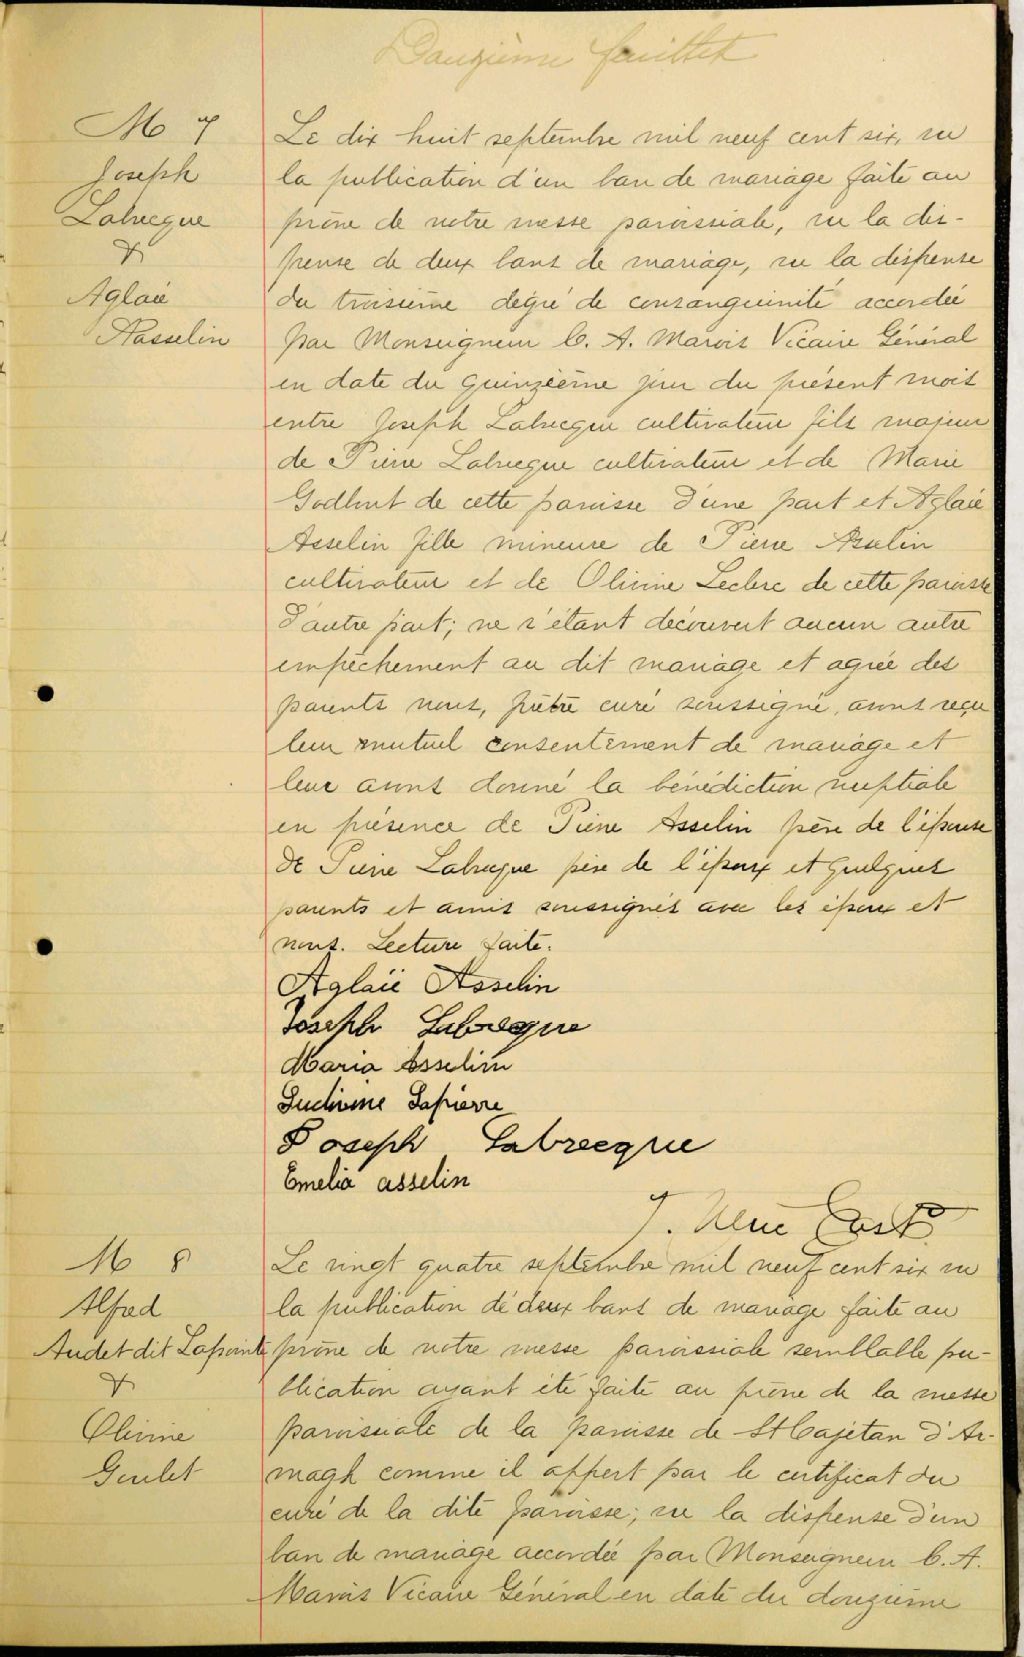 Douzième feuillet
M 7
Joseph
Labrecque
&
Aglaié
Asselin
Le dix huit septembre mil neuf cent six, vu
la publication d'un ban de mariage faite au
prône de notre messe paroissiale, vu la dis-
pense de deux bans de mariage, vu la dispense
du troisième dégré de consanguinité accordée
par Monseigneur C. A. Marois Vicaire Général
en date du quinzième jour du présent mois
entre Joseph Labrecque cultivateur fils majeur
de Pierre Labrecque cultivateur et de Marie
Godbout de cette paroisse d'une part et Aglaié
Asselin fille mineure de Pierre Asselin
cultivateur et de Olivine Leclerc de cette paroisse
d'autre part; ne s'étant découvert aucun autre
empêchement au dit mariage et agrée des
parents nous, prêtre curé soussigné, avons reçu
leur mutuel consentement de mariage et
leur avons donné la bénédiction nuptiale
en présence de Pierre Asselin père de l'épouse
de Pierre Labrecque père de l'époux et quelques
parents et amis soussignés avec les époux et
nous. Lecture faite.
Aglaïe Asselin
Joseph Labrecque
Maria Asselin
Ludivine Lapierre
Joseph Labrecque
Emelia asselin
M 8
Alfred
Audet dit Lapointe
&
Olivine
Goulet
Le vingt quatre septembre mil neuf cent six vu
la publication de deux bans de mariage faite au
prône de notre messe paroissiale semblable pu-
blication ayant été faite au prône de la messe
paroissiale de la paroisse de St Cajétan d'Ar-
magh comme il appert par le certificat du
curé de la dite paroisse; vu la dispense d'un
ban de mariage accordée par Monseigneur C. A.
Marois Vicaire Général en date du douzième